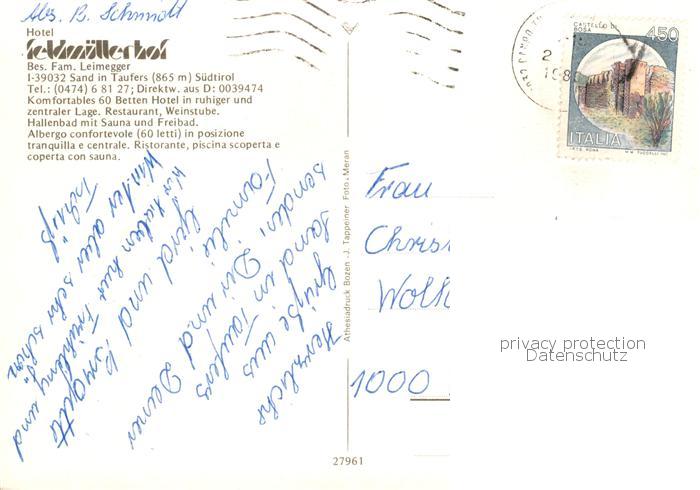 Abs. B. Schmidt
Hotel
feldmüllerhof
Bes. Fam. Leimegger
I-39032 Sand in Taufers (865 m) Südtirol
Tel.: (0474) 6 81 27; Direktw. aus D: 0039474
Komfortables 60 Betten Hotel in ruhiger und
zentraler Lage. Restaurant, Weinstube.
Hallenbad mit Sauna und Freibad.
Albergo confortevole (60 letti) in posizione
tranquilla e centrale. Ristorante, piscina scoperta e
coperta con sauna.
Herzliche
Grüße aus
Sand in Taufers
senden Dir und Deiner
Familie
Gerd und Brigitte
Wir haben hier Frühling und
Winter aber sehr schön
Tschüß
Athesiadruck Bozen - J. Tappeiner Foto - Meran
27961
CASTELLO DI
ROSA
450
ITALIA
Frau
Chris
Wolk
1000
privacy protection
Datenschutz